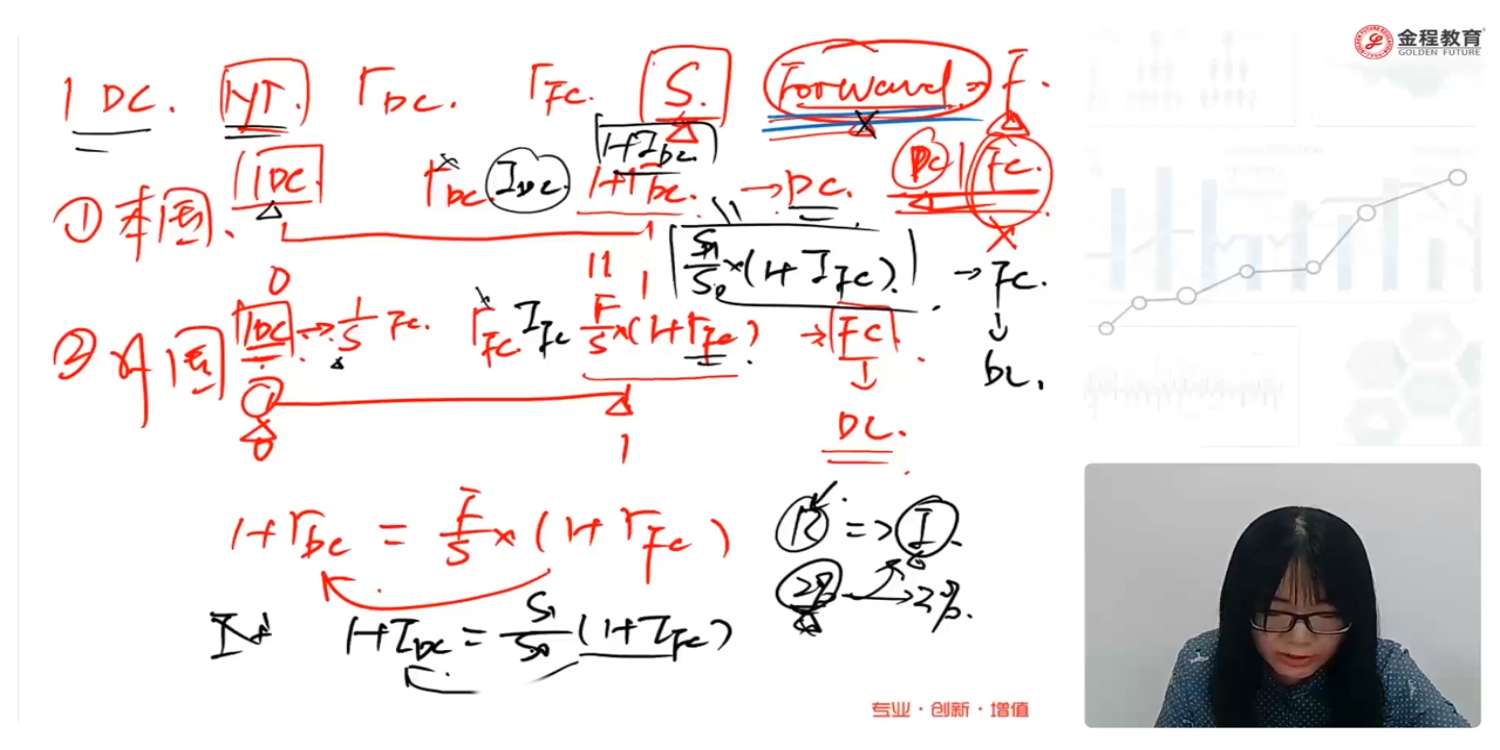 金程教育
GOLDEN FUTURE
1 DC. 1yr. r_DC. r_FC. S. Forward => F.
1+I_DC.
① 本国. 1DC. r_DC. I_DC. 1+r_DC. → DC. DC | FC.
0 1
S₁/S₀ × (1+I_FC). → FC.
↓
DC.
② 外国 1DC → 1/S FC. r_FC I_FC F/S × (1+r_FC) → FC.
↓
DC.
0 1
1+r_DC = F/S × (1+r_FC)
R => I.
2% → 2%.
1+I_DC = S₁/S₀ (1+I_FC)
专业·创新·增值